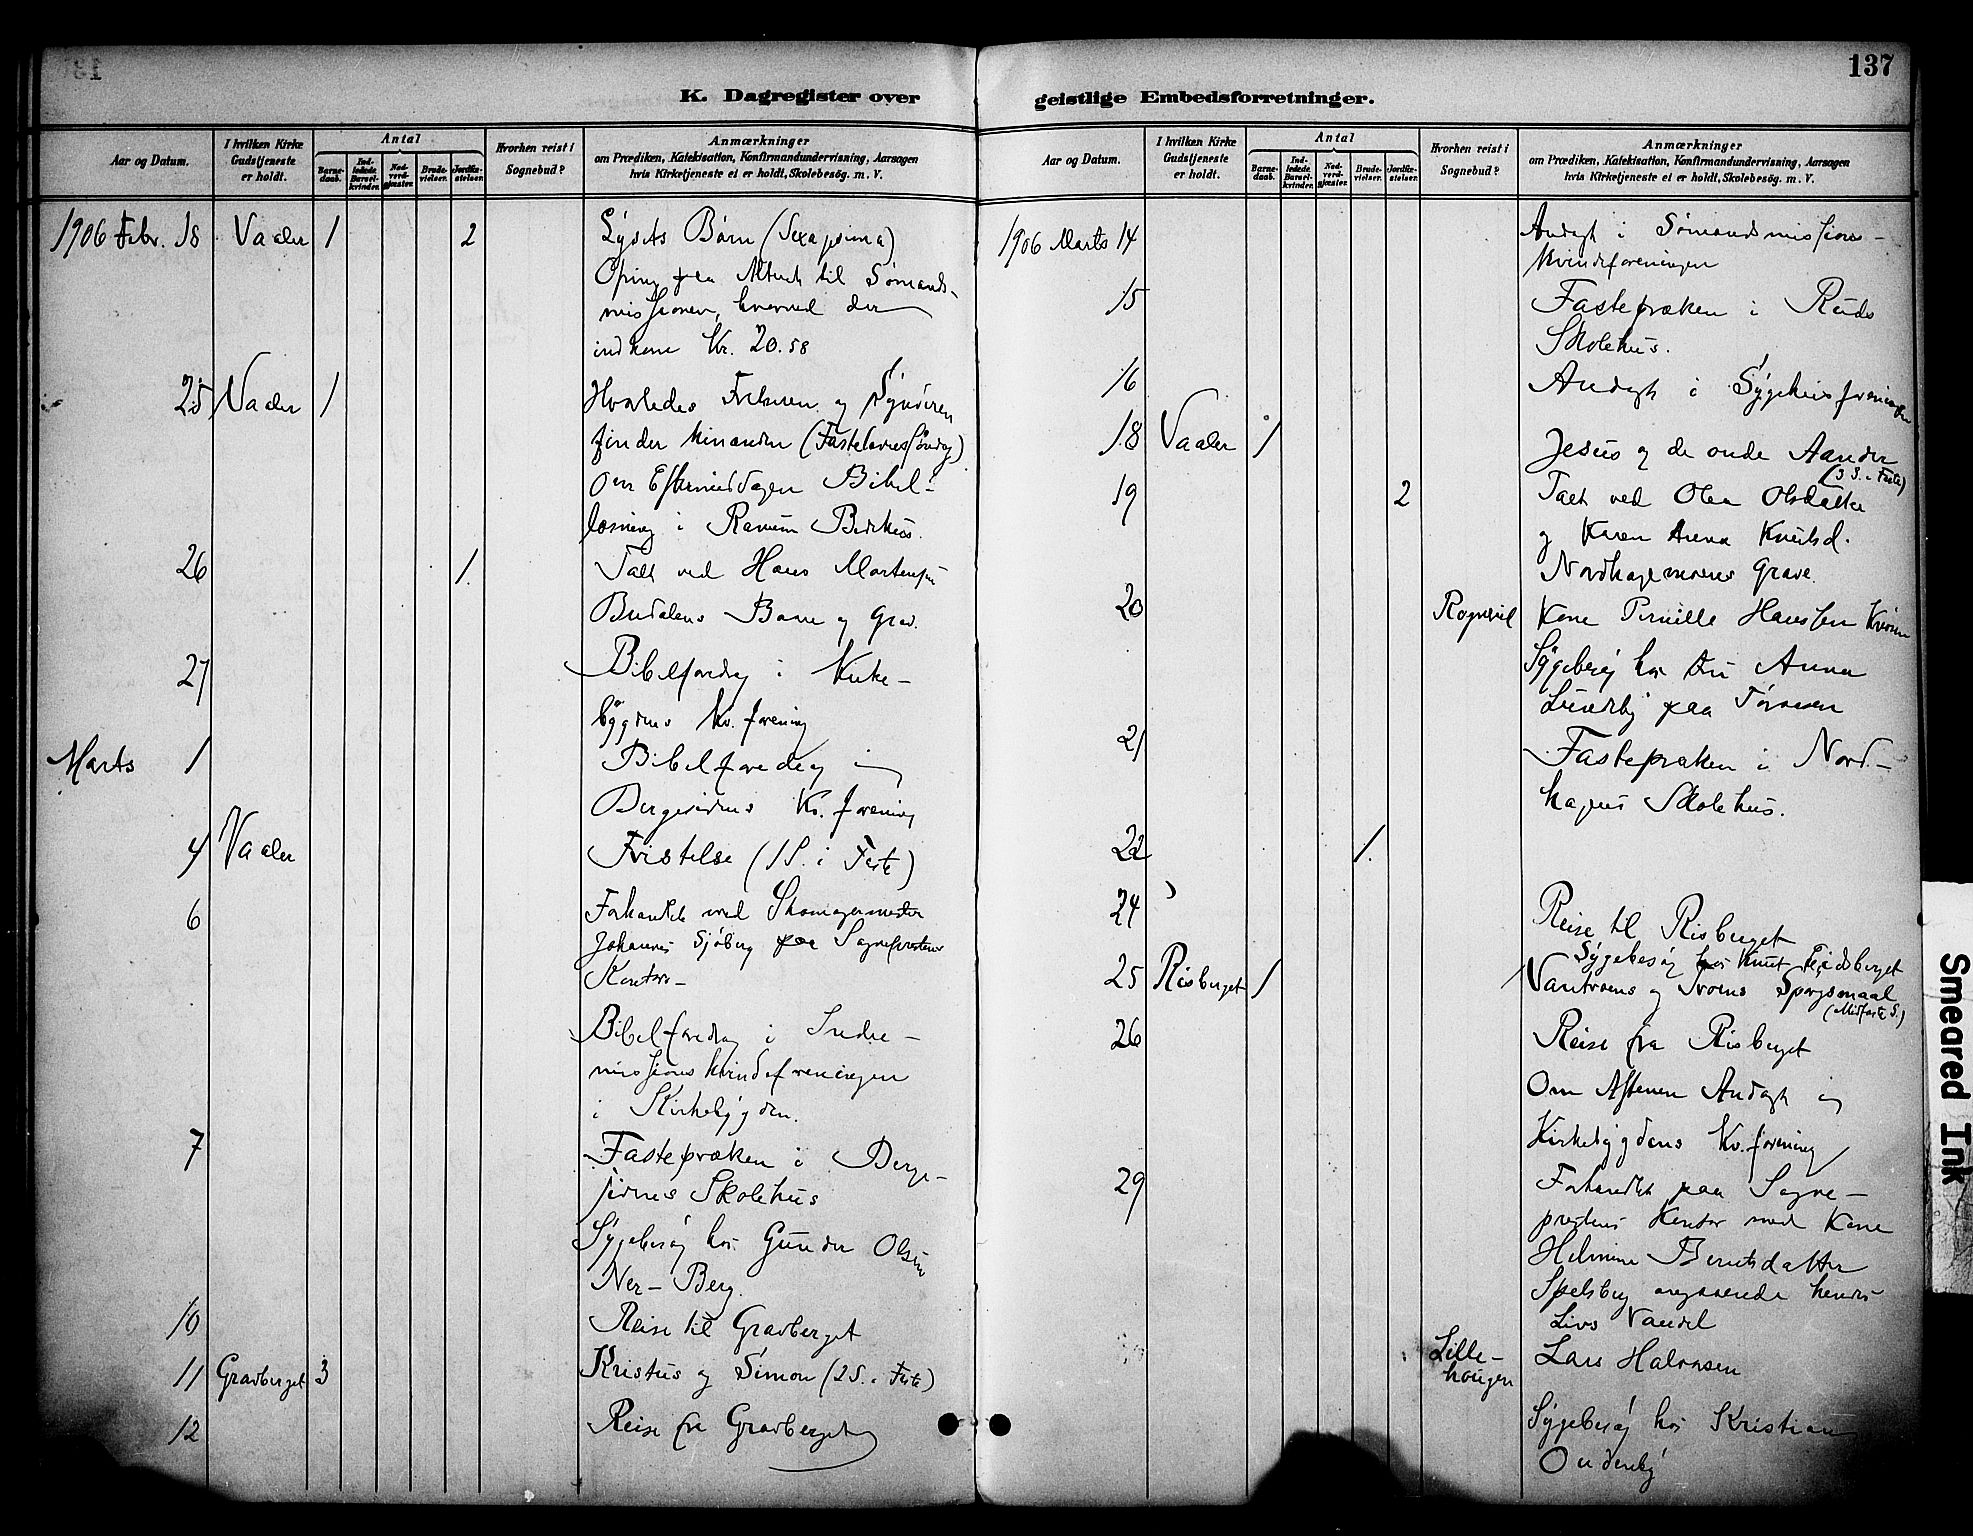 137
K. Dagregister over geistlige Embedsforretninger.
Aar og Datum.
I hvilken Kirke Gudstjeneste er holdt.
Antal
Barne-daab.
Ind-ledede Barsel-kvinder.
Nad-verd-gjæster.
Brude-vielser.
Jordfæ-stelser.
Hvorhen reist i Sognebud?
Anmærkninger
om Prædiken, Katekisation, Konfirmandundervisning, Aarsagen
hvis Kirketjeneste ei er holdt, Skolebesøg. m. V.
1906 Febr. 18 Vaaler 1 2 Lysets Børn (Sexagesima)
Ofring paa Alteret til Sømands-
missionen, hvorved der
indkom Kr. 20.58
25 Vaaler 1 Hvorledes Frelseren og Synderen
finder hinanden (Fastelavnssøndag)
Om Eftermiddagen Bibel-
læsning i Ranum Bedehus.
26 1. Talt ved Hans Martinsen
Budalens Baare og Grav.
27 Bibelforedrag i
bygdens Kv.forening
Marts 1 Bibelforedrag i
Bergesidens Kv.forening
4 Vaaler Fristelse (1 S. i Faste)
6 Forhandlet med Skomagermester
Johannes Sjöberg paa Sogneprestens
Kontor-
Bibelforedrag i Indre-
missionskvindeforeningen
i Kirkebygden.
7 Fastepræken i Berge-
sidens Skolehus
Sygebesøg hos Gunder Olsen
Ner-Berg.
10 Reise til Gravberget
11 Gravberget 3 Kristus og Simon (2 S. i Faste)
12 Reise fra Gravberget
Aar og Datum.
I hvilken Kirke Gudstjeneste er holdt.
Antal
Barne-daab.
Ind-ledede Barsel-kvinder.
Nad-verd-gjæster.
Brude-vielser.
Jordfæ-stelser.
Hvorhen reist i Sognebud?
Anmærkninger
om Prædiken, Katekisation, Konfirmandundervisning, Aarsagen
hvis Kirketjeneste ei er holdt, Skolebesøg. m. V.
1906 Marts 14 Andagt i Sømandsmissions-
kvindeforeningen
15 Fastepræken i Ruds
Skolehus.
16 Andagt i Sygehusforeningen
18 Vaaler 1 Jesus og de onde Aander
(3 S. i Faste)
19 2 Talt ved Olea Olsdatter
og Karen Anna Knutsd.
Nordhagemoens Grave.
20 Kone Pernille Hanssen
Sygebesøg hos Anna
Lundby paa
21 Fastepræken i Nord-
hagens Skolehus.
22 1.
24 Reise til Risberget
Sygebesøg hos Knut
25 Risberget 1 Vantroens og Troens Spørgsmaal
(Midfaste S.)
26 Reise fra Risberget
Om Aftenen Andagt i
Kirkebygdens Kv.forening
29 Forhandlet paa Sogne-
prestens Kontor med Kone
Helmine Berntsdatter
Spelsberg angaaende hendes
Livs Vandel
Lille-
haugen Lars Halvorsen
Sygebesøg hos Kristian
Smeared Ink